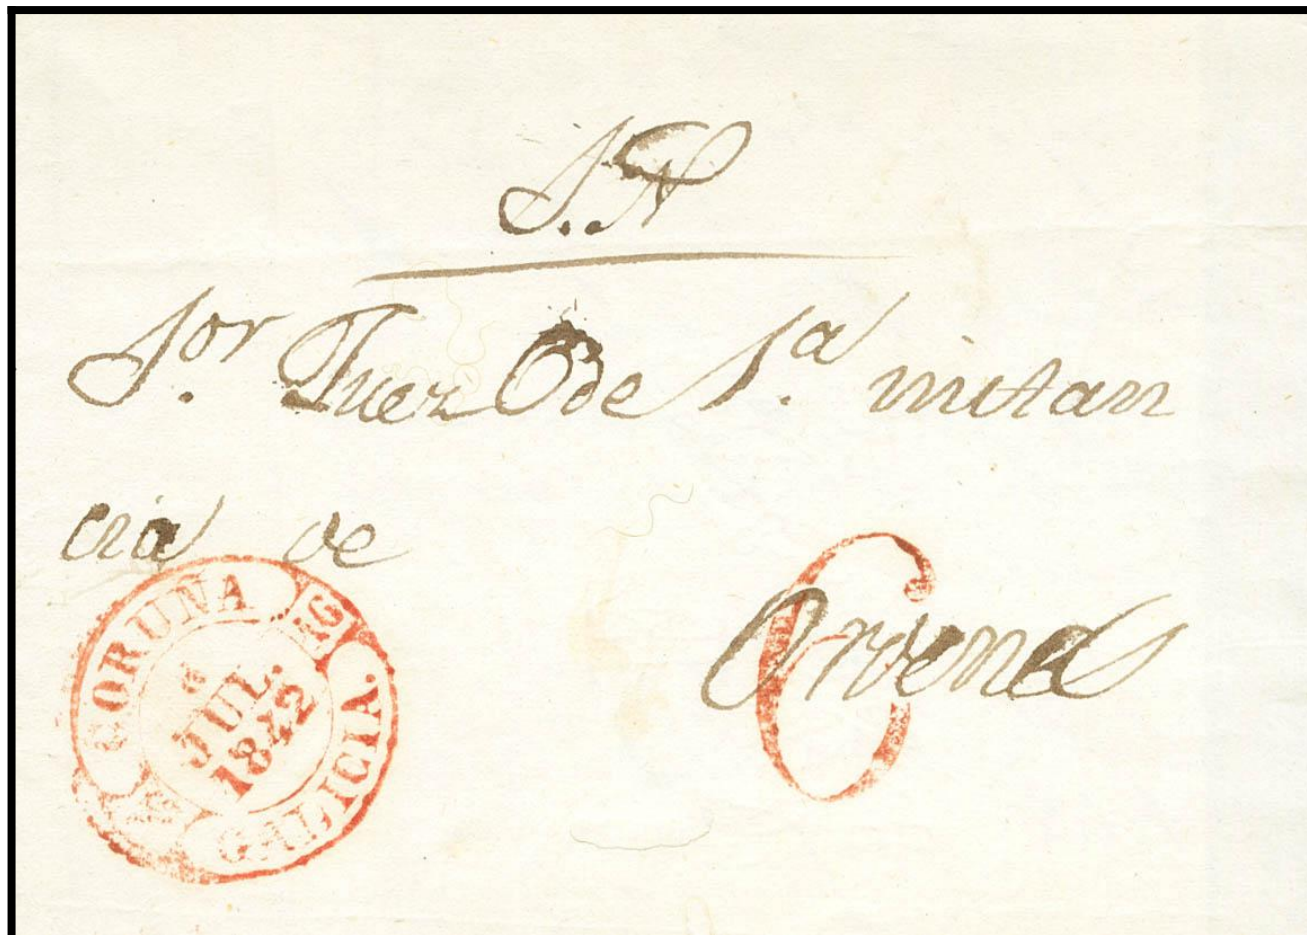 S.N
S.or Juez de 1.a instan
cia de
Ordenes
CORUÑA
19
6
JUL.
1842
GALICIA.
6